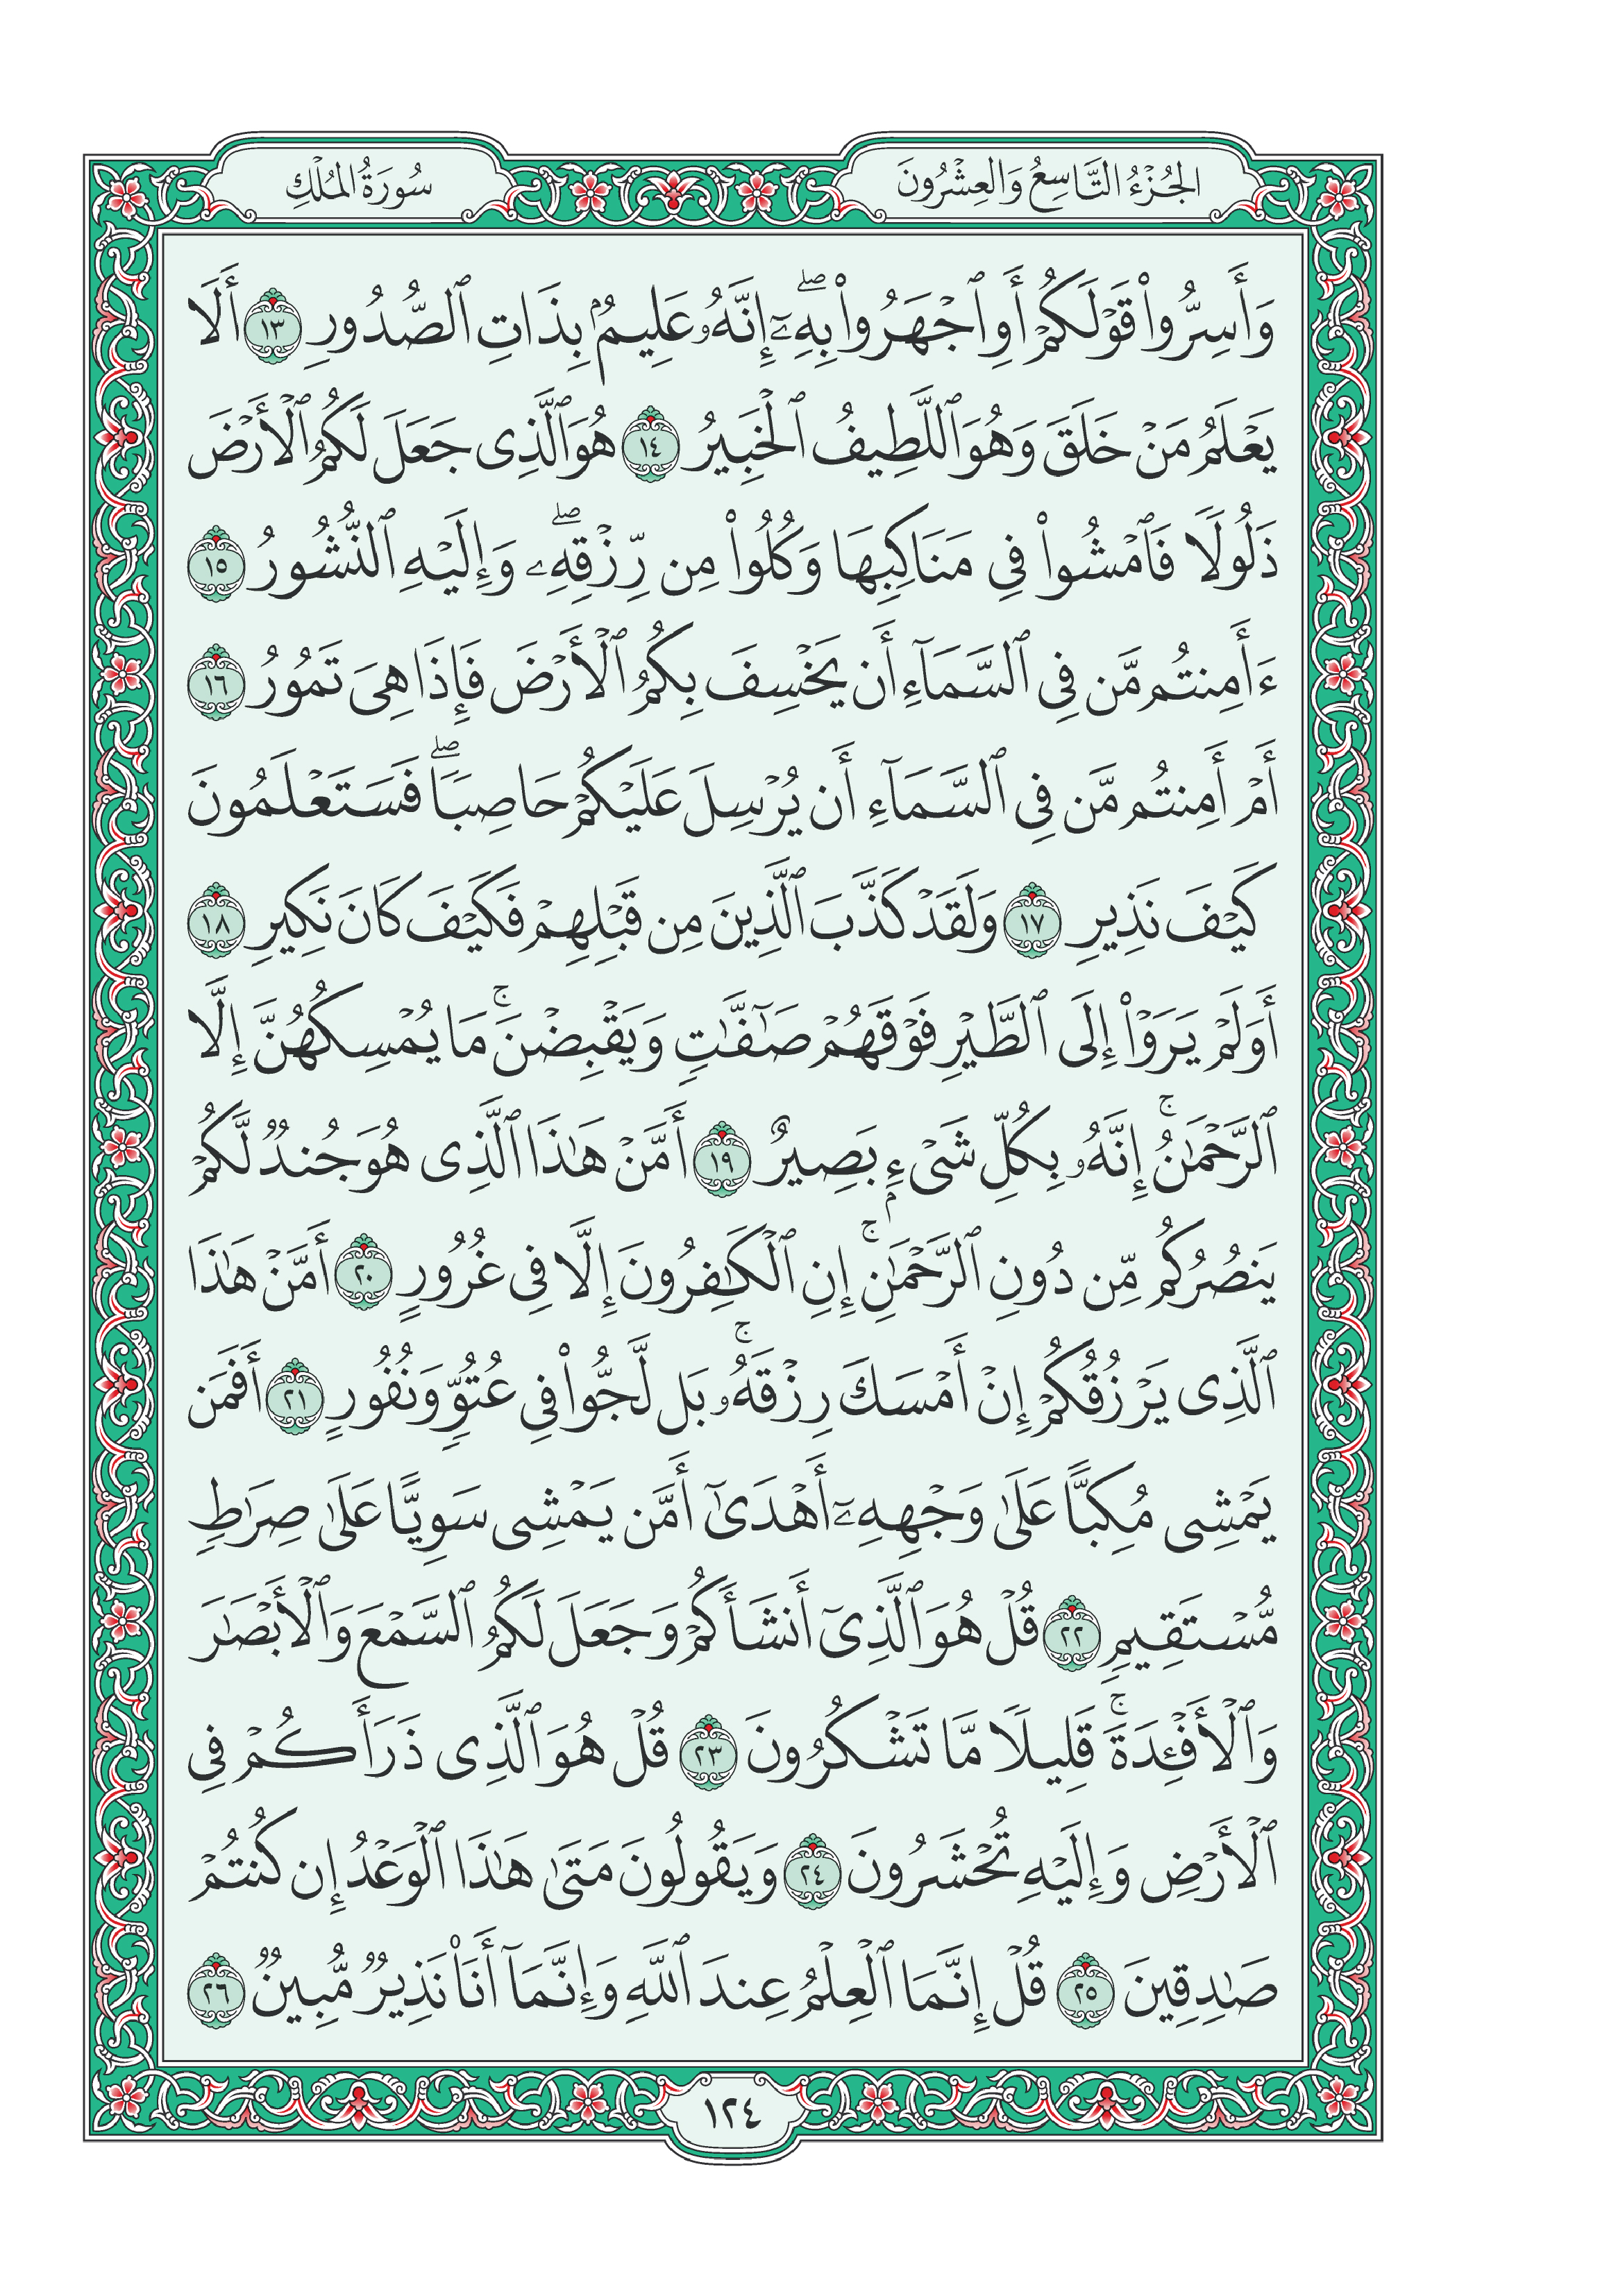 الجُزْءُ التَّاسِعُ وَالعِشْرُونَ
سُورَةُ المُلْكِ
وَأَسِرُّواْ قَوْلَكُمْ أَوِ ٱجْهَرُواْ بِهِۦٓۖ إِنَّهُۥ عَلِيمُۢ بِذَاتِ ٱلصُّدُورِ ١٣ أَلَا
يَعْلَمُ مَنْ خَلَقَ وَهُوَ ٱللَّطِيفُ ٱلْخَبِيرُ ١٤ هُوَ ٱلَّذِى جَعَلَ لَكُمُ ٱلْأَرْضَ
ذَلُولًا فَٱمْشُواْ فِى مَنَاكِبِهَا وَكُلُواْ مِن رِّزْقِهِۦۖ وَإِلَيْهِ ٱلنُّشُورُ ١٥
ءَأَمِنتُم مَّن فِى ٱلسَّمَآءِ أَن يَخْسِفَ بِكُمُ ٱلْأَرْضَ فَإِذَا هِىَ تَمُورُ ١٦
أَمْ أَمِنتُم مَّن فِى ٱلسَّمَآءِ أَن يُرْسِلَ عَلَيْكُمْ حَاصِبًاۖ فَسَتَعْلَمُونَ
كَيْفَ نَذِيرِ ١٧ وَلَقَدْ كَذَّبَ ٱلَّذِينَ مِن قَبْلِهِمْ فَكَيْفَ كَانَ نَكِيرِ ١٨
أَوَلَمْ يَرَوْاْ إِلَى ٱلطَّيْرِ فَوْقَهُمْ صَٰٓفَّٰتٍ وَيَقْبِضْنَۚ مَا يُمْسِكُهُنَّ إِلَّا
ٱلرَّحْمَٰنُۚ إِنَّهُۥ بِكُلِّ شَىْءِۭ بَصِيرٌ ١٩ أَمَّنْ هَٰذَا ٱلَّذِى هُوَ جُندٌ لَّكُمْ
يَنصُرُكُم مِّن دُونِ ٱلرَّحْمَٰنِۚ إِنِ ٱلْكَٰفِرُونَ إِلَّا فِى غُرُورٍ ٢٠ أَمَّنْ هَٰذَا
ٱلَّذِى يَرْزُقُكُمْ إِنْ أَمْسَكَ رِزْقَهُۥۚ بَل لَّجُّواْ فِى عُتُوٍّ وَنُفُورٍ ٢١ أَفَمَن
يَمْشِى مُكِبًّا عَلَىٰ وَجْهِهِۦٓ أَهْدَىٰٓ أَمَّن يَمْشِى سَوِيًّا عَلَىٰ صِرَٰطٍ
مُّسْتَقِيمٍ ٢٢ قُلْ هُوَ ٱلَّذِىٓ أَنشَأَكُمْ وَجَعَلَ لَكُمُ ٱلسَّمْعَ وَٱلْأَبْصَٰرَ
وَٱلْأَفْـِٔدَةَۚ قَلِيلًا مَّا تَشْكُرُونَ ٢٣ قُلْ هُوَ ٱلَّذِى ذَرَأَكُمْ فِى
ٱلْأَرْضِ وَإِلَيْهِ تُحْشَرُونَ ٢٤ وَيَقُولُونَ مَتَىٰ هَٰذَا ٱلْوَعْدُ إِن كُنتُمْ
صَٰدِقِينَ ٢٥ قُلْ إِنَّمَا ٱلْعِلْمُ عِندَ ٱللَّهِ وَإِنَّمَآ أَنَا۠ نَذِيرٌ مُّبِينٌ ٢٦
١٢٤